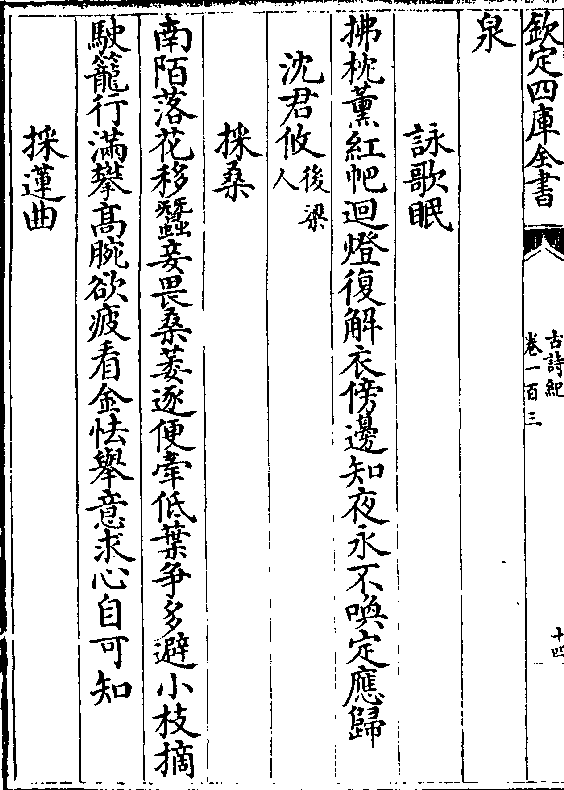 欽定四庫全書
古詩紀
卷一百三
十四
泉
詠歌眠
拂枕薰紅帊迴燈復解衣傍邊知夜永不喚定應歸
沈君攸後梁人
採桑
南陌落花移蠶妾畏桑萎逐便牽低葉爭多避小枝摘
駛籠行滿攀高腕欲疲看金怯舉意求心自可知
採蓮曲